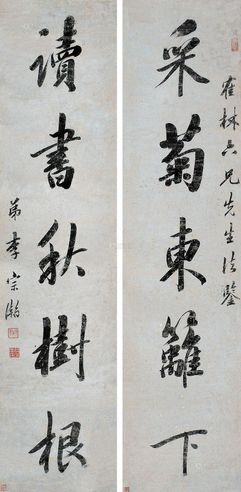 霍林六兄先生法鑒
采菊東籬下
讀書秋樹根
弟李宗瀚